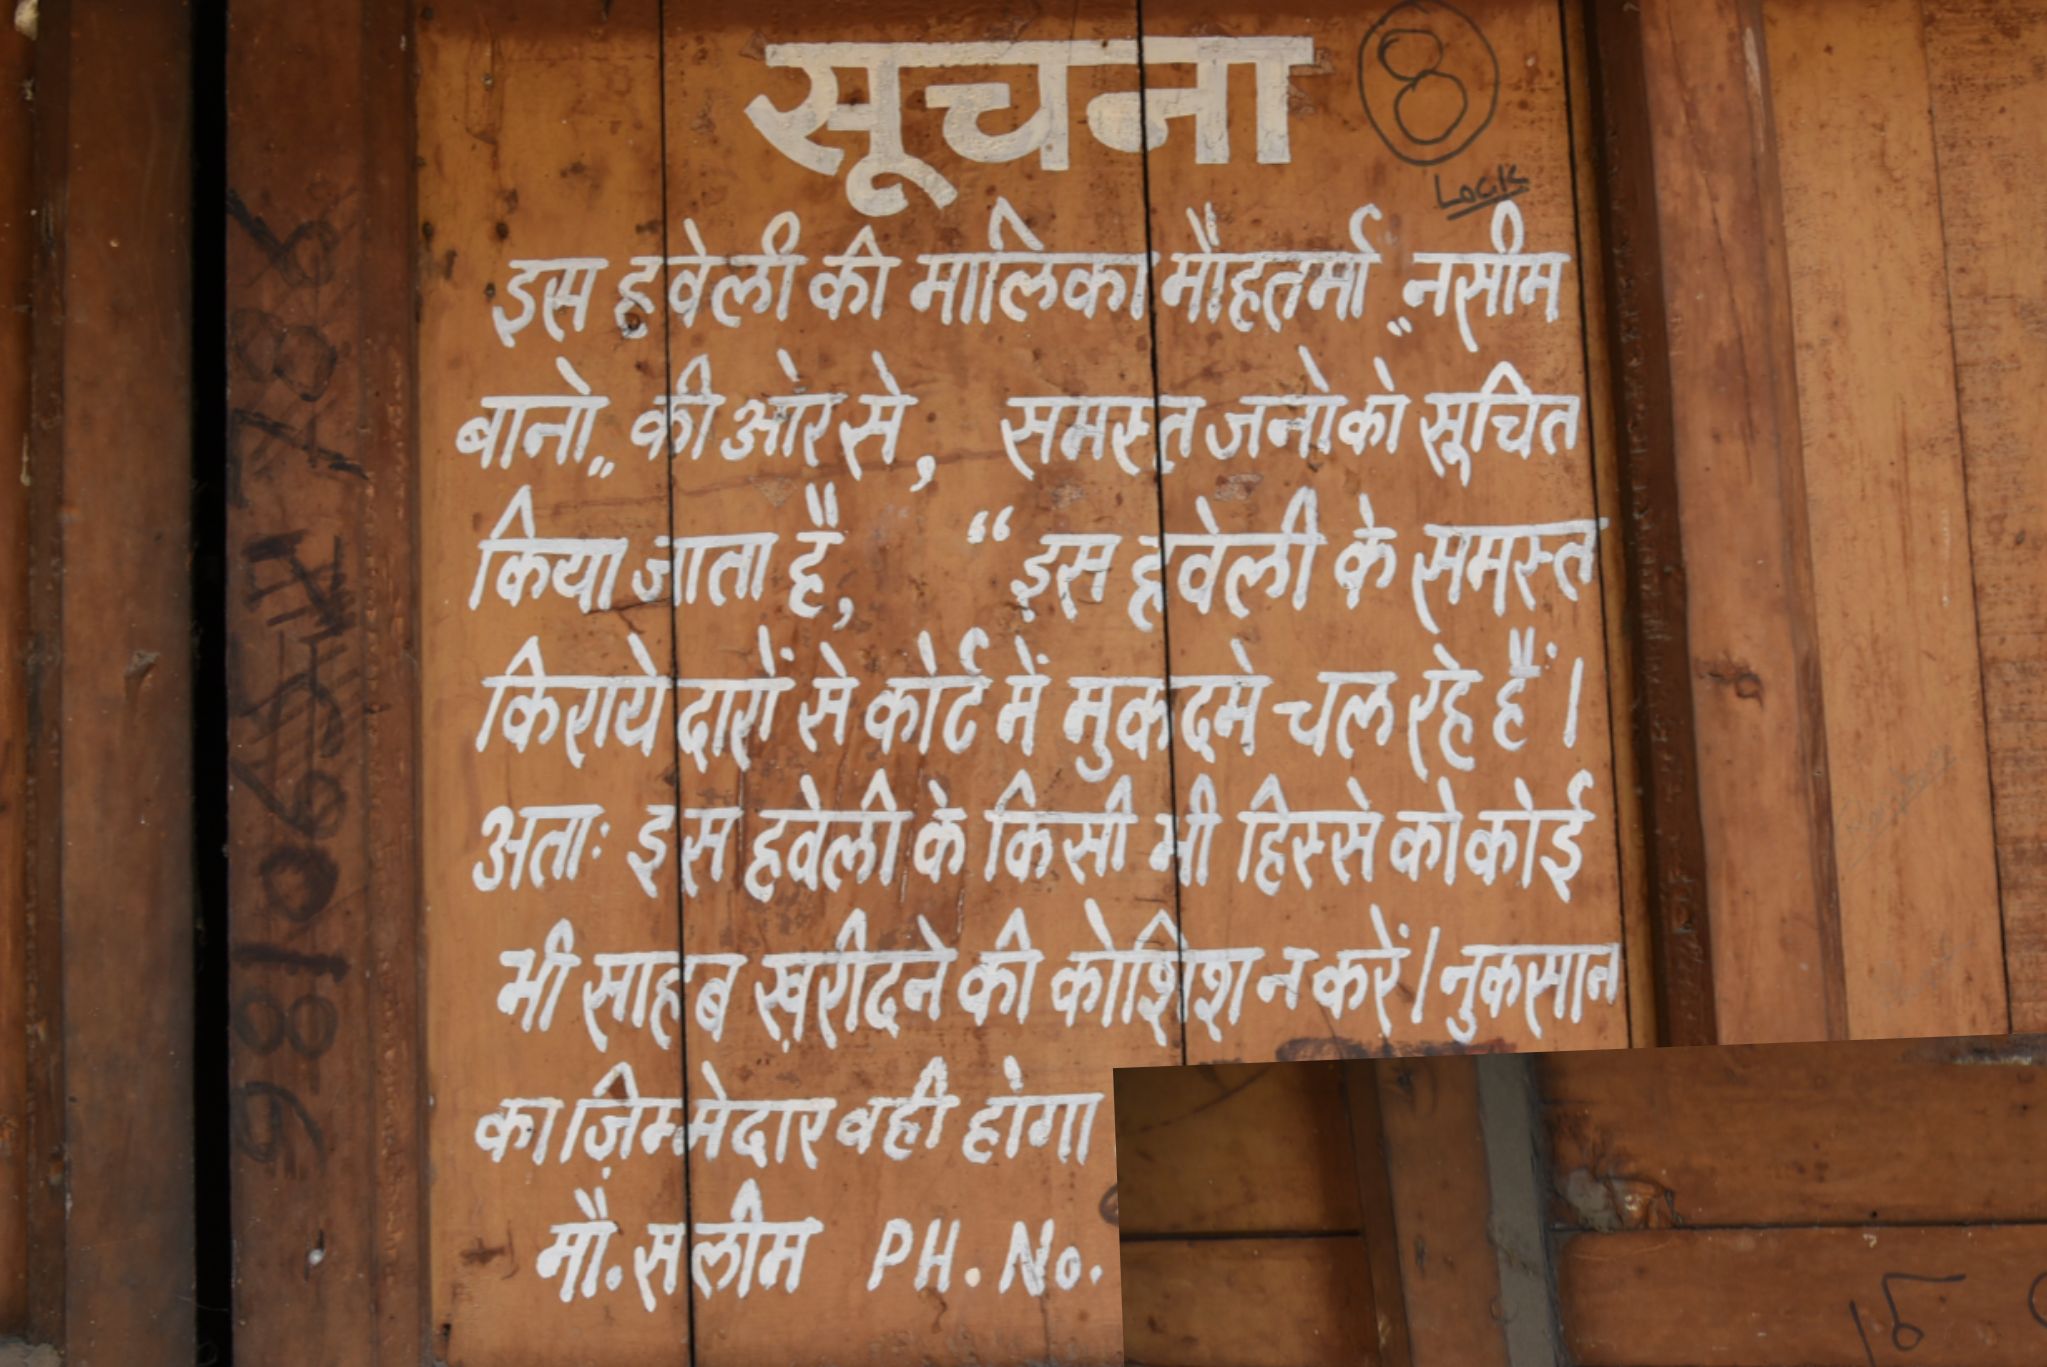 सूचना
8
Lock
इस हवेली की मालिका मौहतर्मा „नसीम
बानो„ की ओर से, समस्त जनोको सूचित
किया जाता है, “इस हवेली के समस्त
किराये दारों से कोर्ट में मुकदमे चल रहे हैं ।
अताः इस हवेली के किसी भी हिस्से को कोई
भी साहब ख़रीदने की कोशिश न करें । नुकसान
का ज़िम्मेदार वही होगा
मौ. सलीम PH. No.
15